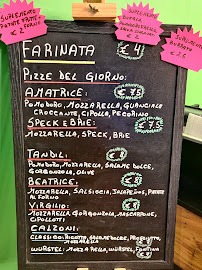 SUPPLEMENTO
PATATE FRITTE
FORNO
€ 2
SUPPLEMENTO
BUFALA
€ 2,5
FARINATA € 4
PIZZE DEL GIORNO:
AMATRICE:
POMODORO, MOZZARELLA, GUANCIALE
CROCCANTE, CIPOLLA, PECORINO
SPECK E BRIE:
MOZZARELLA, SPECK, BRIE
TANDI: € 8
POMODORO, MOZZARELLA, SALAME DOLCE,
GORGONZOLA, OLIVE
BEATRICE: € 8
MOZZARELLA, SALSICCIA, PATATE
AL FORNO
VIRGILIO: € 8
MOZZARELLA, GORGONZOLA, MASCARPONE,
CIPOLLOTTI
CALZONI:
CLASSICO: SALAME DOLCE, PROSCIUTTO,
MOZZARELLA
WÜRSTEL: MOZZARELLA, WÜRSTEL,